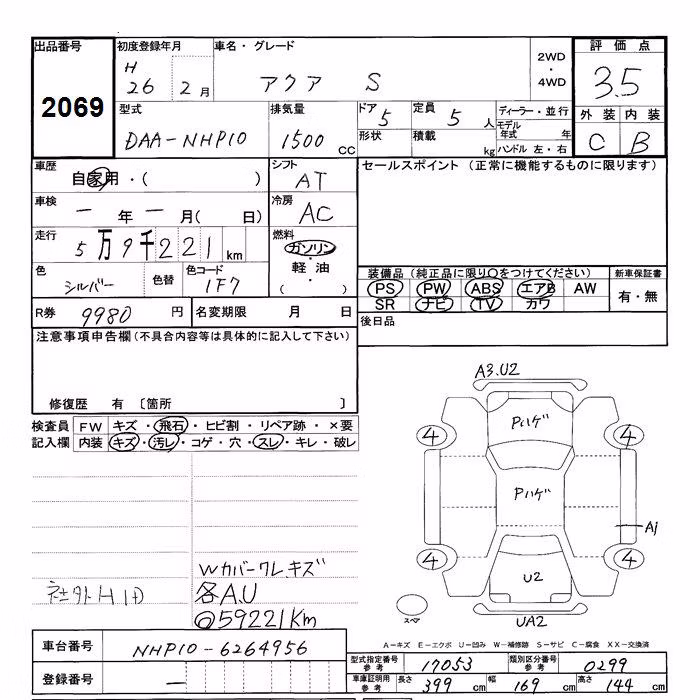 出品番号 初度登録年月 車名・グレード 評価点
2069 H 26 2月 アクア S 2WD・4WD 3.5
型式 排気量 ドア 5 定員 5人 ディーラー・並行 外装 内装
DAA-NHP10 1500cc 形状 積載 kg モデル年式 年 C B
ハンドル 左・右
車歴 自家用・( ) シフト AT セールスポイント (正常に機能するものに限ります)
車検 ー年ー月( 日) 冷房 AC
走行 5万9千221km 燃料 ガソリン・軽油・( )
色 シルバー 色替 色コード 1F7
装備品 (純正品に限り○をつけてください) 新車保証書
PS PW ABS エアB AW 有・無
SR ナビ TV カワ
R券 9980円 名変期限 月 日 後日品
注意事項申告欄 (不具合内容等は具体的に記入して下さい)
修復歴 有 〔箇所 〕
検査員記入欄 FW キズ・飛石・ヒビ割・リペア跡・×要
内装 キズ・汚レ・コゲ・穴・スレ・キレ・破レ
A3.U2
Pハゲ
4 4
Pハゲ
A1
4 4
U2
スペア
UA2
Wカバークレ.キズ
社外HID 各A.U
@59221Km
A-キズ E-エクボ U-凹み W-補修跡 S-サビ C-腐食 XX-交換済
車台番号 NHP10-6264956
型式指定番号 参考 17053 類別区分番号 参考 0299
登録番号 ー 車庫証明用 参考 長さ 399cm 幅 169cm 高さ 144cm